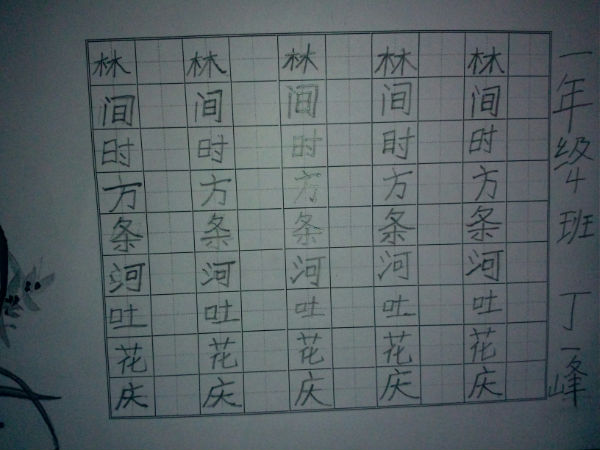 林 林 林 林 林
间 间 间 间 间
时 时 时 时 时
方 方 方 方 方
条 条 条 条 条
河 河 河 河 河
吐 吐 吐 吐 吐
花 花 花 花 花
庆 庆 庆 庆 庆
一年级4班 丁一峰